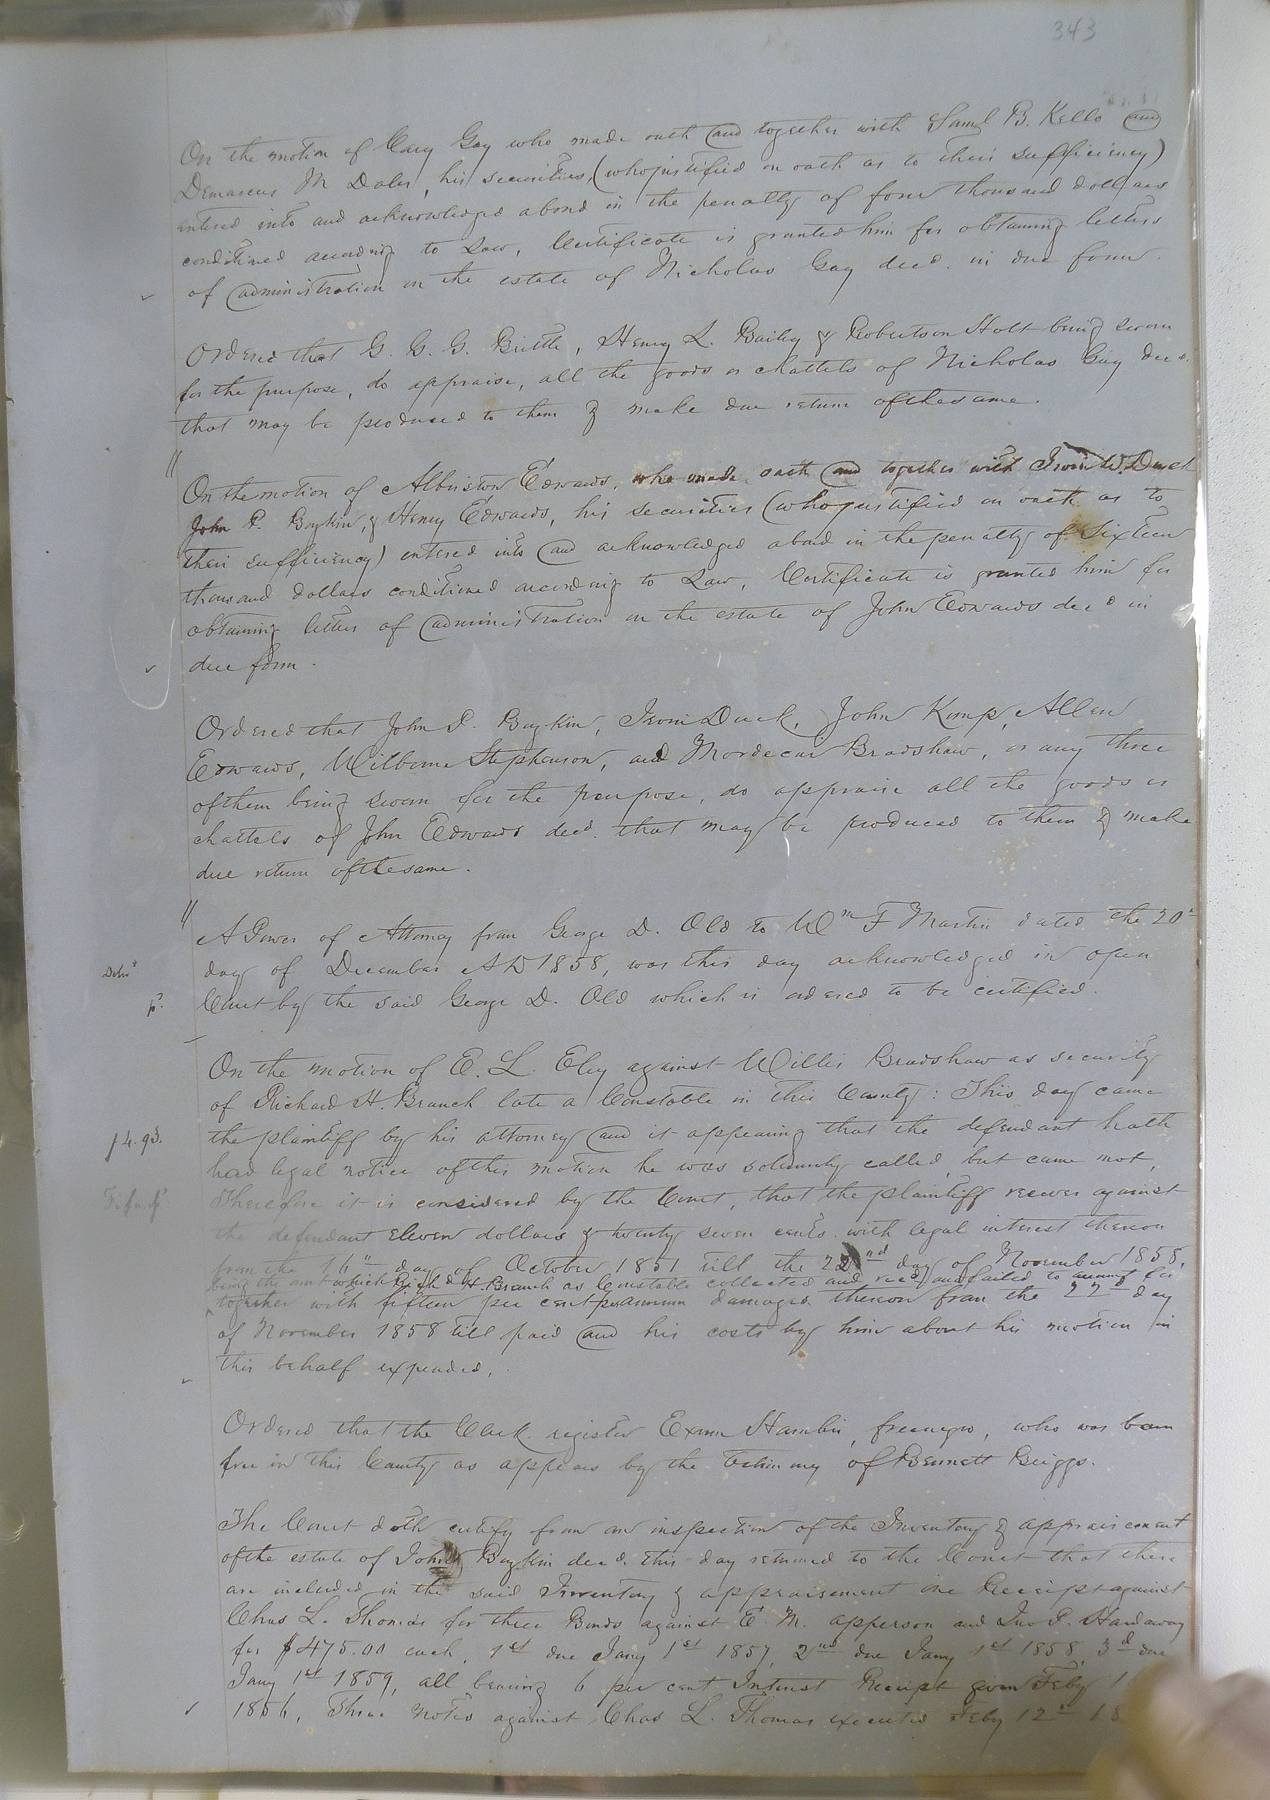 343
On the motion of Cary Gay who made oath and together with Saml B. Kello and
Demarcus M Dales, his securities, (who justified on oath as to their sufficiency)
entered into and acknowledged a bond in the penalty of four thousand dollars
conditioned according to Law, Certificate is granted him for obtaining letters
of administration on the estate of Nicholas Gay decd. in due form.
Ordered that G. G. G. Brittle, Henry L. Bailey & Robertson Holt being sworn
for the purpose, do appraise, all the goods or chattels of Nicholas Gay decd.
that may be produced to them & make due return of the same.
On the motion of Albriston Edwards, who made oath and together with Irvin W. Duck
John P. Boykin, & Henry Edwards, his securities (who justified on oath as to
their sufficiency) entered into and acknowledged a bond in the penalty of Sixteen
thousand dollars conditioned according to Law, Certificate is granted him for
obtaining letters of administration on the estate of John Edwards decd in
due form.
Ordered that John P. Boykin, Irvin Duck, John Kump, Allen
Edwards, Wilborne Stephenson, and Mordecai Bradshaw, or any three
of them being sworn for the purpose, do appraise all the goods or
chattels of John Edwards decd. that may be produced to them & make
due return of the same.
A Power of Attorney from George D. Old to Wm F Martin dated the 20th
day of December AD 1858, was this day acknowledged in open
Court by the said George D. Old which is ordered to be certified.
On the motion of E. L. Eley against Willis Bradshaw as security
of Richard H. Branch late a Constable in this County: This day came
the plaintiff by his attorney and it appearing that the defendant hath
had legal notice of this motion he was solemnly called but came not,
Therefore it is considered by the Court, that the plaintiff recover against
the defendant eleven dollars & twenty seven cents with legal interest thereon
from the 16th day of October 1851 till the 22nd day of November 1858,
being the amt which Richd H. Branch as Constable collected and recd and failed to account for
together with fifteen per cent per annum damages thereon from the 22d day
of November 1858 till paid and his costs by him about his motion in
this behalf expended.
Ordered that the Clerk register Exum Hamlin, free negro, who was born
free in this County as appears by the testimony of Bennett Briggs.
The Court doth certify from an inspection of the Inventory & appraisement
of the estate of John Boykin decd. this day returned to the Court that there
are included in the said Inventory & appraisement one Receipt against
Chas L. Thomas for three Bonds against E. M. Apperson and Jno P. Hardaway
for $475.00 each, 1st due Jany 1st 1857, 2nd due Jany 1st 1858, 3d due
Jany 1st 1859, all bearing 6 per cent Interest Receipt given Feby 1
1856, Three notes against Chas L. Thomas executed Feby 12th 18